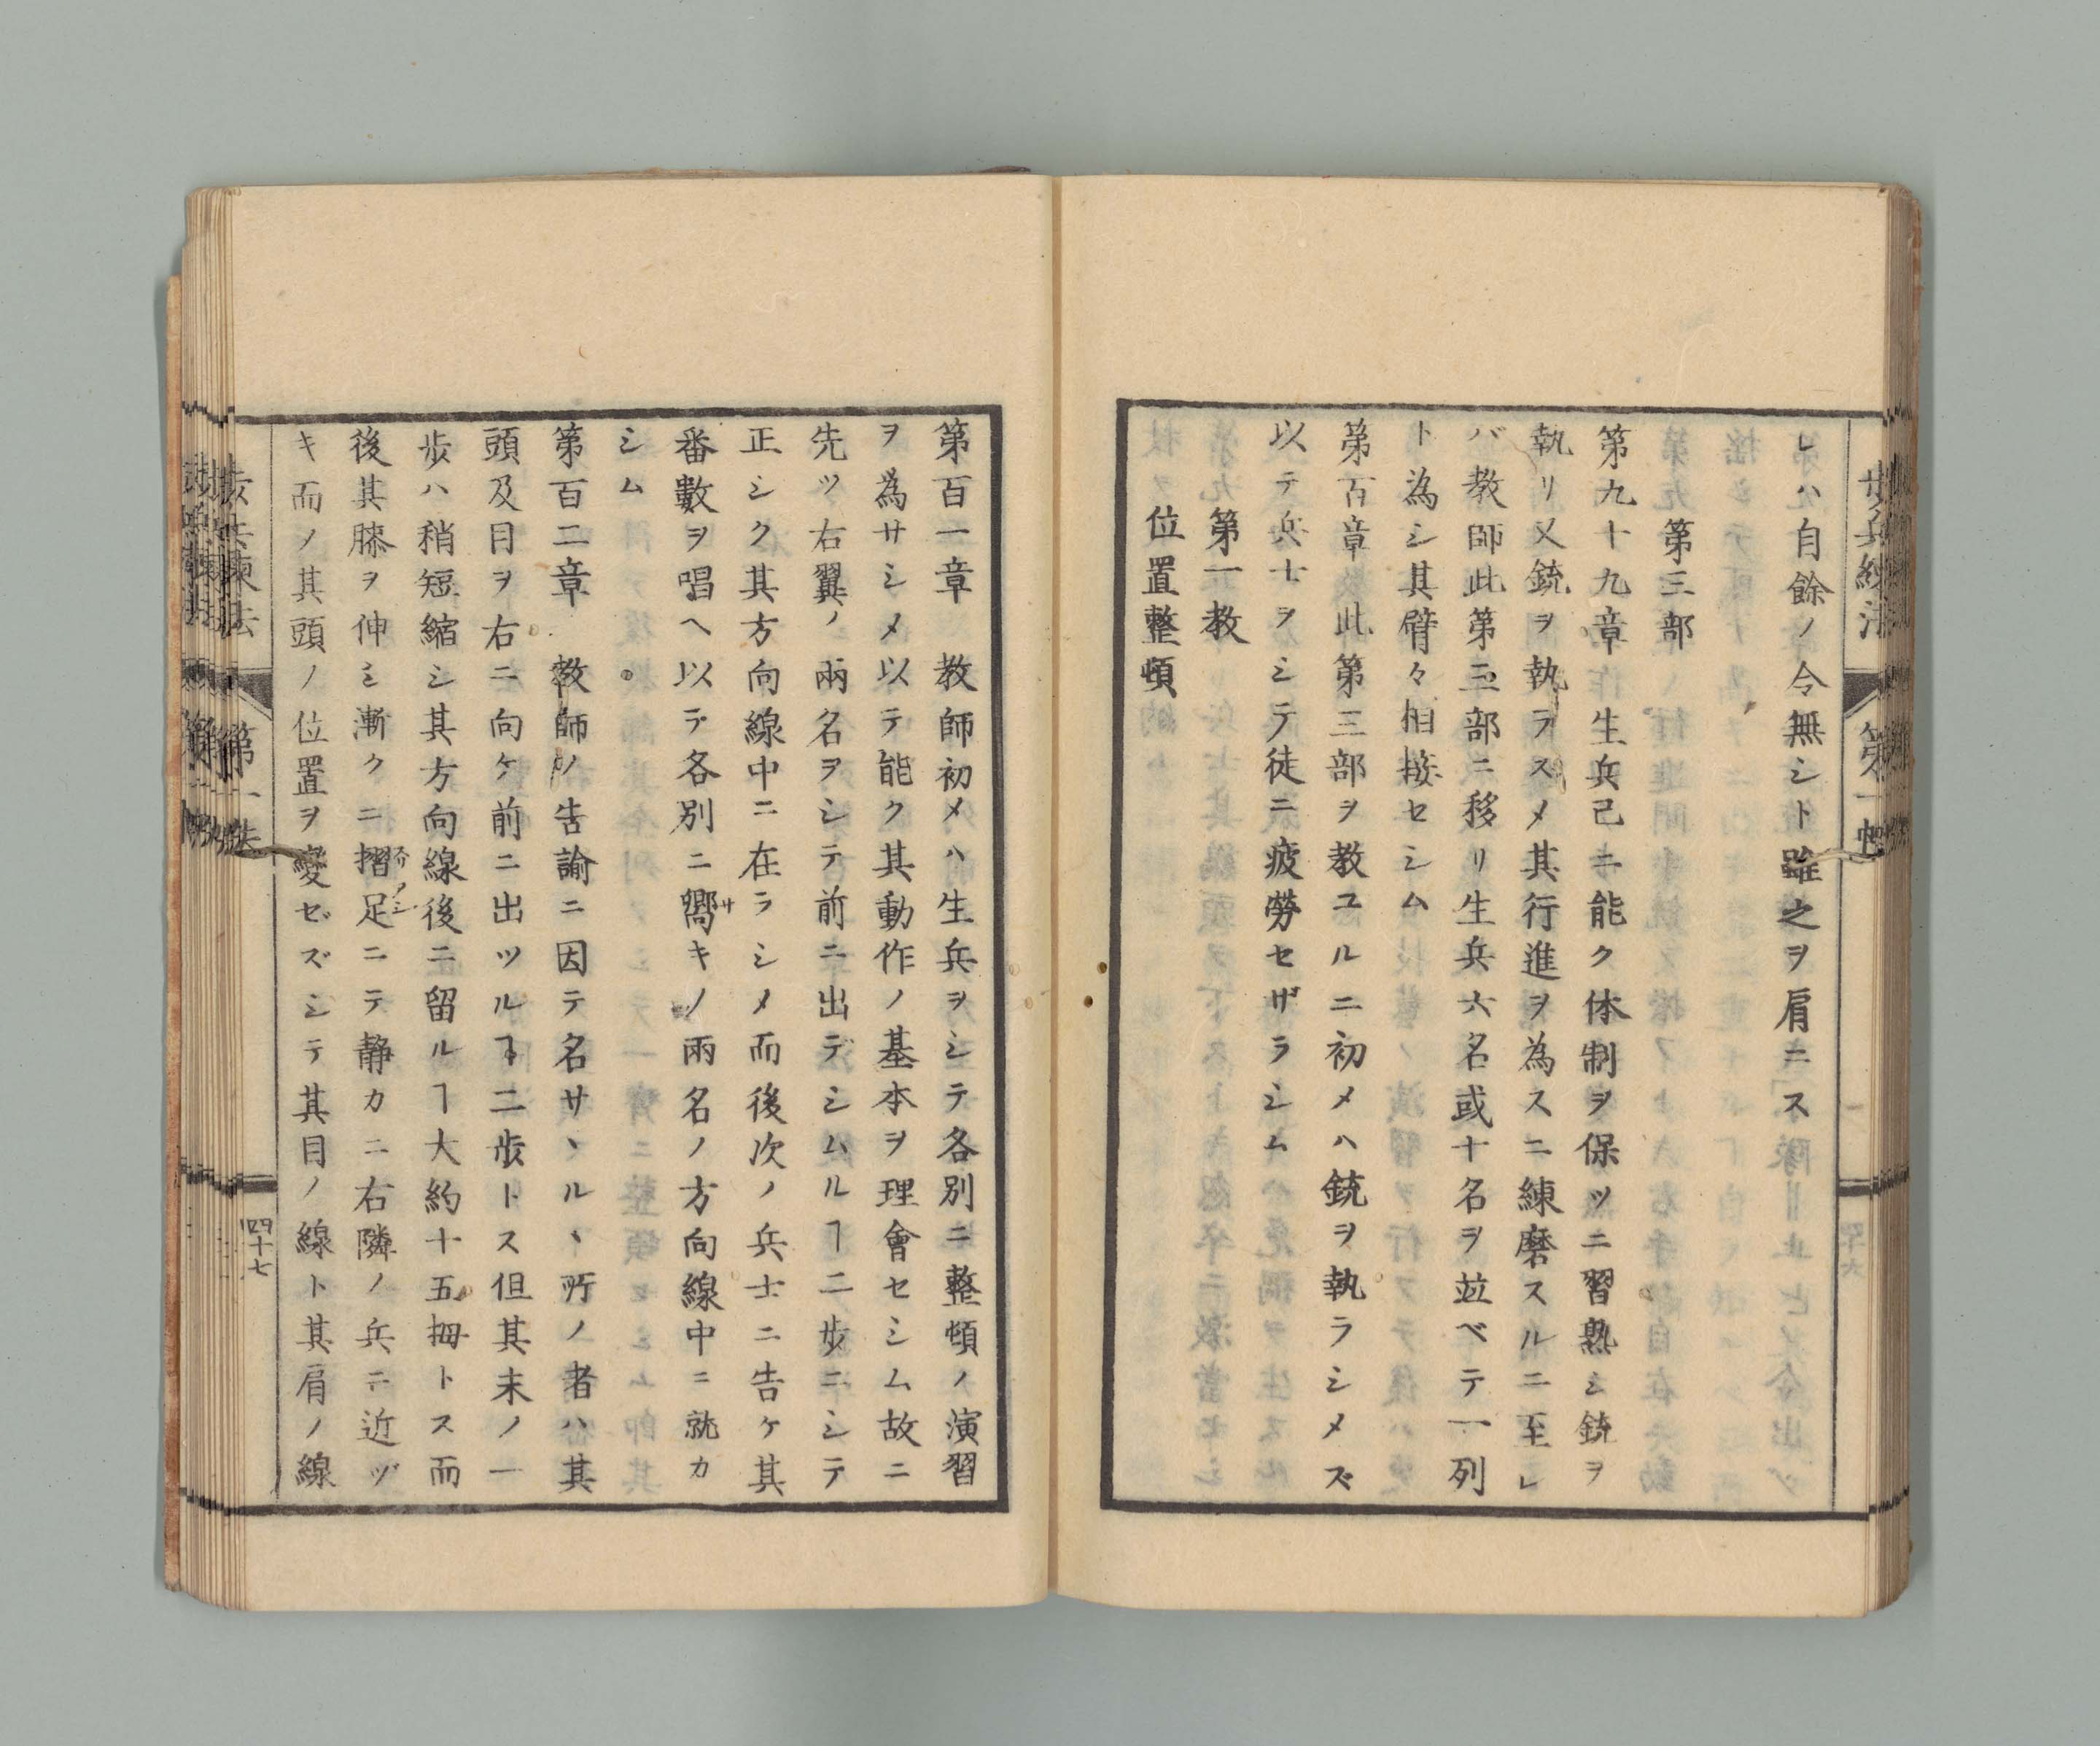 レハ自餘ノ令無シト雖之ヲ肩ニス
第三部
第九十九章　生兵已ニ能ク体制ヲ保ツニ習熟シ銃ヲ
執リ又銃ヲ執ラスメ其行進ヲ為スニ練磨スルニ至レ
バ教師此第三部ニ移リ生兵六名或十名ヲ並ベテ一列
ト為シ其臂々相接セシム
第百章　此第三部ヲ教ユルニ初メハ銃ヲ執ラシメズ
以テ兵士ヲシテ徒ニ疲勞セザラシム
第一教
位置整頓
第百一章　教師初メハ生兵ヲシテ各別ニ整頓ノ演習
ヲ為サシメ以テ能ク其動作ノ基本ヲ理會セシム故ニ
先ツ右翼ノ兩名ヲシテ前ニ出デシムルヿ二歩ニシテ
正シク其方向線中ニ在ラシメ而後次ノ兵士ニ告ケ其
番數ヲ唱ヘ以テ各別ニ嚮サキノ兩名ノ方向線中ニ就カ
シム。
第百二章　教師ノ告諭ニ因テ名サヽルヽ所ノ者ハ其
頭及目ヲ右ニ向ケ前ニ出ツルヿ二歩トス但其末ノ一
歩ハ稍短縮シ其方向線後ニ留ルヿ大約十五拇トス而
後其膝ヲ伸シ漸クニ摺足ニテ静カニ右隣ノ兵ニ近ヅ
キ而ノ其頭ノ位置ヲ變セズシテ其目ノ線ト其肩ノ線
歩兵練法
第一
四十七